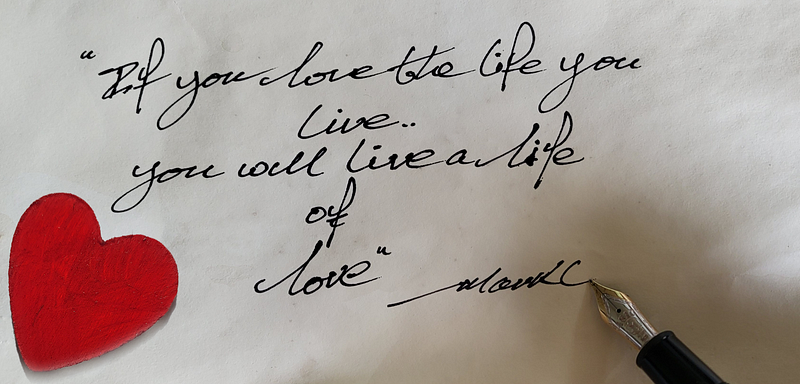 "If you love the life you
live..
you will live a life
of
love" MarkC